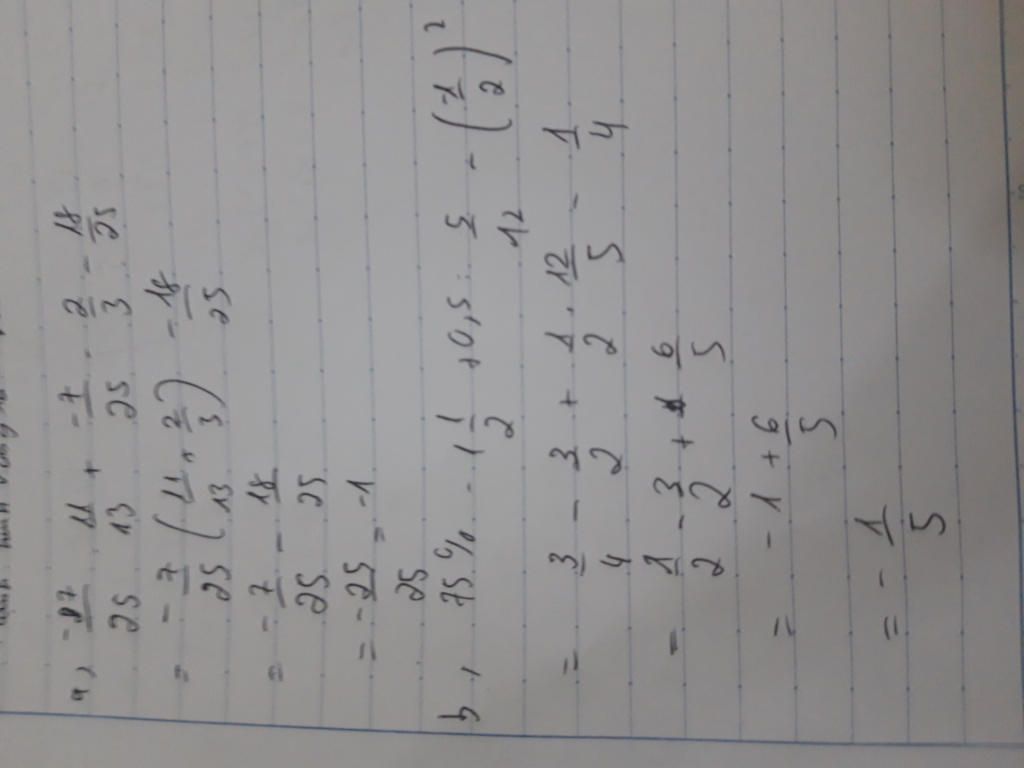 a, -17/25 . 11/13 + -7/25 . 2/3 - 18/25
= -7/25 ( 11/13 + 2/3 ) - 18/25
= -7/25 - 18/25
= -25/25 = -1
b, 75% - 1 1/2 + 0,5 : 5/12 - ( -1/2 )²
= 3/4 - 3/2 + 1/2 . 12/5 - 1/4
= 1/2 - 3/2 + 6/5
= -1 + 6/5
= -1/5